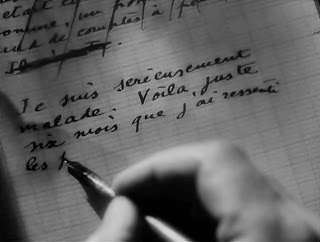 était
comme, un
de comptes à
Je suis sérieusement
malade. Voilà juste
six mois que j'ai ressenti
les